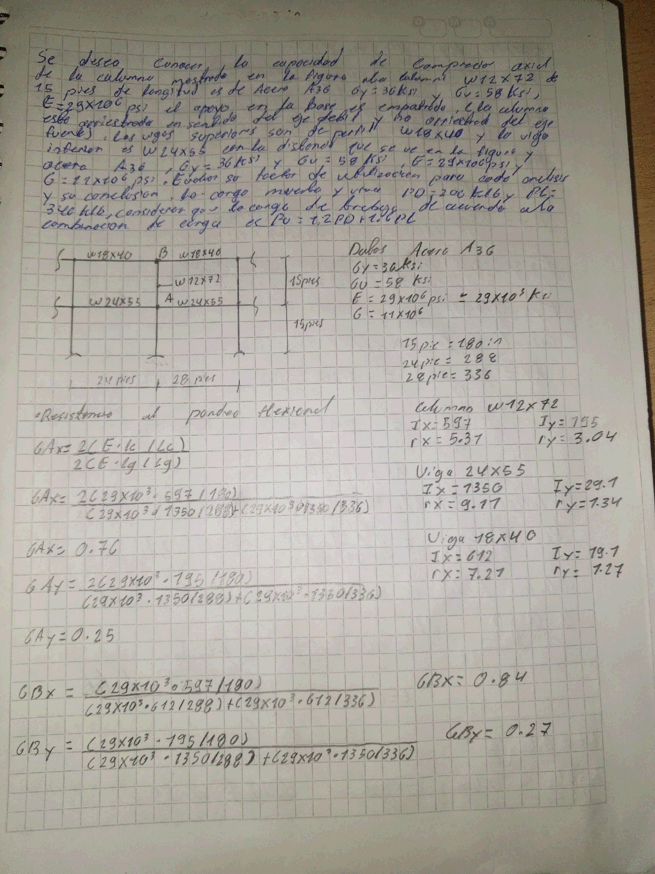 Se desea conocer la capacidad de compresion axial
de la columna mostrada en la figura la columna W12x72 de
15 pies de longitud es de Acero A36 Gy = 36 Ksi y Gu = 58 Ksi,
E = 29x10⁶ psi el apoyo en la base es empotrado. la columna
esta arriostrada en sentido del eje debil y no arriostrada del eje
fuerte. Las vigas superiores son de perfil W18x40 y la viga
inferior es W24x55 con la distancia que se ve en la figura y
acero A36, Gy = 36 Ksi y Gu = 58 Ksi, E = 29x10⁶ psi y
G = 11x10⁶ psi. Evaluar su factor de utilizacion para cada analisis
y su conclusion. La carga muerta y viva PD = 200 Klb y PL =
340 Klb, considerar que la carga de trabajo de acuerdo a la
combinacion de carga es Pu = 1,2PD + 1,6PL
W18x40 B W18x40
W12x72
W24x55 A W24x55
15pies
15pies
24 pies 28 pies
Datos Acero A36
Gy = 36 Ksi
Gu = 58 Ksi
E = 29x10⁶ psi = 29x10³ Ksi
G = 11x10⁶
15 pie = 180 in
24 pie = 288
28 pie = 336
Columna W12x72
Ix = 597 Iy = 195
rx = 5.31 ry = 3.04
Viga 24x55
Ix = 1350 Iy = 29.1
rx = 9.11 ry = 1.34
Viga 18x40
Ix = 612 Iy = 19.1
rx = 7.21 ry = 1.27
•Resistencia al pandeo flexional
GAx = Σ(E·Ic/Lc)
Σ(E·Ig/Lg)
GAx = 2(29x10³·597/180)
(29x10³·1350/288)+(29x10³·1350/336)
GAx = 0.76
GAy = 2(29x10³·195/180)
(29x10³·1350/288)+(29x10³·1350/336)
GAy = 0.25
GBx = (29x10³·597/180)
(29x10³·612/288)+(29x10³·612/336)
GBx = 0.84
GBy = (29x10³·195/180)
(29x10³·1350/288)+(29x10³·1350/336)
GBy = 0.27